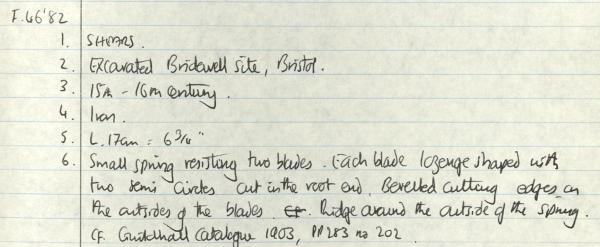 F.46'82
1. SHEARS.
2. Excavated Bridewell site, Bristol.
3. 15th - 16th century.
4. Iron.
5. L. 17cm = 6 3/4"
6. Small spring resisting two blades. Each blade lozenge shaped with
two semi circles cut in the root end. Bevelled cutting edges on
the outsides of the blades. Ridge around the outside of the spring.
CF. Guildhall Catalogue 1903, PP 283 no 202